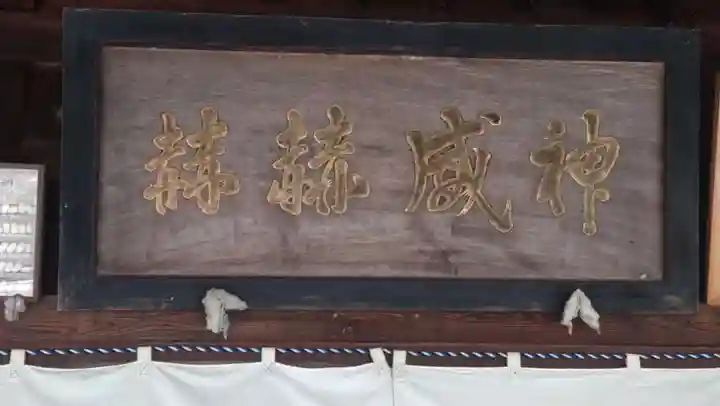 神威赫赫